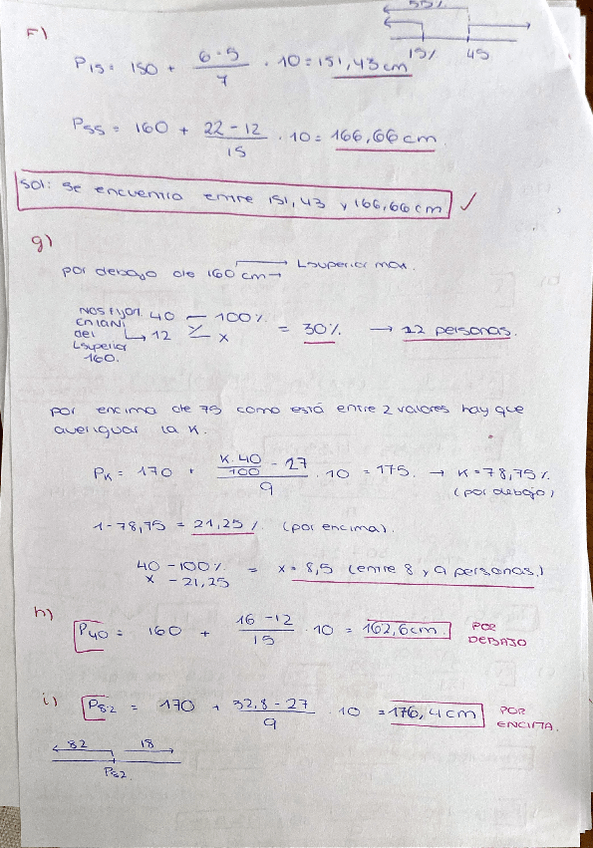 F)
55%
15% 45
P15 = 150 + 6-5/7 · 10 = 151,43 cm
P55 = 160 + 22-12/15 · 10 = 166,66 cm
Sol: se encuentra entre 151,43 y 166,66 cm ✓
g)
por debajo de 160 cm → Lsuperior max.
Nos fijan 40 — 100%
en la Ni
del → 12 — x = 30% → 12 personas.
Lsuperior
160.
por encima de 75 como está entre 2 valores hay que
averiguar la K.
PK = 170 + K·40/100 - 27/9 · 10 = 175. → K = 78,75%
(por debajo)
1-78,75 = 21,25% (por encima).
40 - 100% = x = 8,5 (entre 8 y 9 personas.)
x - 21,25
h)
P40 = 160 + 16-12/15 · 10 = 162,6cm. POR DEBAJO
i) P82 = 170 + 32,8-27/9 · 10 = 176,4 cm POR ENCIMA.
82 18
P82.